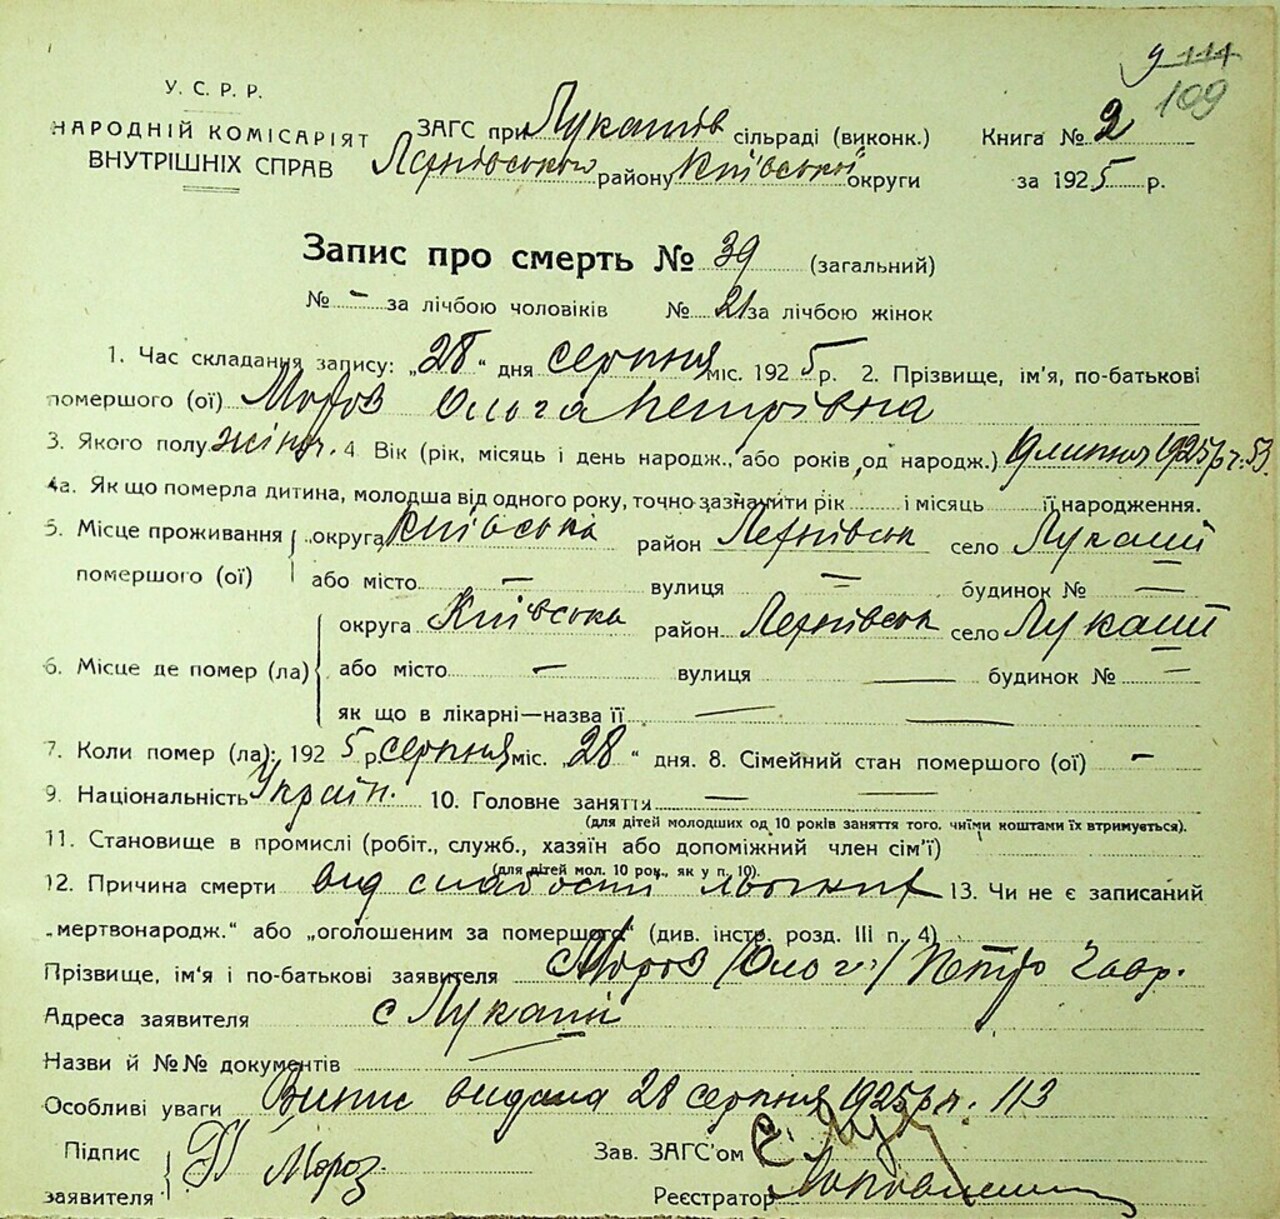 9 111
109
У. С. Р. Р.
НАРОДНІЙ КОМІСАРІЯТ
ВНУТРІШНІХ СПРАВ
ЗАГС при Лукашів сільраді (виконк.)
району Київської округи
Книга № 2
за 1925 р.
Запис про смерть № 39 (загальний)
№ - за лічбою чоловіків № 21 за лічбою жінок
1. Час складання запису: „28" дня серпня міс. 1925 р. 2. Прізвище, ім'я, по-батькові
помершого (ої) Мороз Ольга Петрівна
3. Якого полу жіноч. 4 Вік (рік, місяць і день народж., або років од народж.) 9 липня 1925 р ч. 53
4а. Як що померла дитина, молодша від одного року, точно зазначити рік і місяць її народження.
5. Місце проживання помершого (ої) округа Київська район село Лукаші
або місто — вулиця — будинок № —
6. Місце де помер (ла) округа Київська район село Лукаші
або місто — вулиця — будинок № —
як що в лікарні—назва її — —
7. Коли помер (ла): 1925 р. серпня міс. „28" дня. 8. Сімейний стан помершого (ої) -
9. Національність Україн. 10. Головне заняття — —
(для дітей молодших од 10 років заняття того, чиїми коштами їх втримується).
11. Становище в промислі (робіт., служб., хазяїн або допоміжний член сім'ї)
(для дітей мол. 10 роц., як у п. 10).
12. Причина смерти від слабості 13. Чи не є записаний
„мертвонародж." або „оголошеним за помершого" (див. інстр. розд. III п. 4)
Прізвище, ім'я і по-батькові заявителя Мороз (Ольг.) Петро Гавр.
Адреса заявителя с Лукаші
Назви й №№ документів
Особливі уваги Випис видана 28 серпня 1925 р ч. 113
Підпис заявителя П Мороз
Зав. ЗАГС'ом
Реєстратор